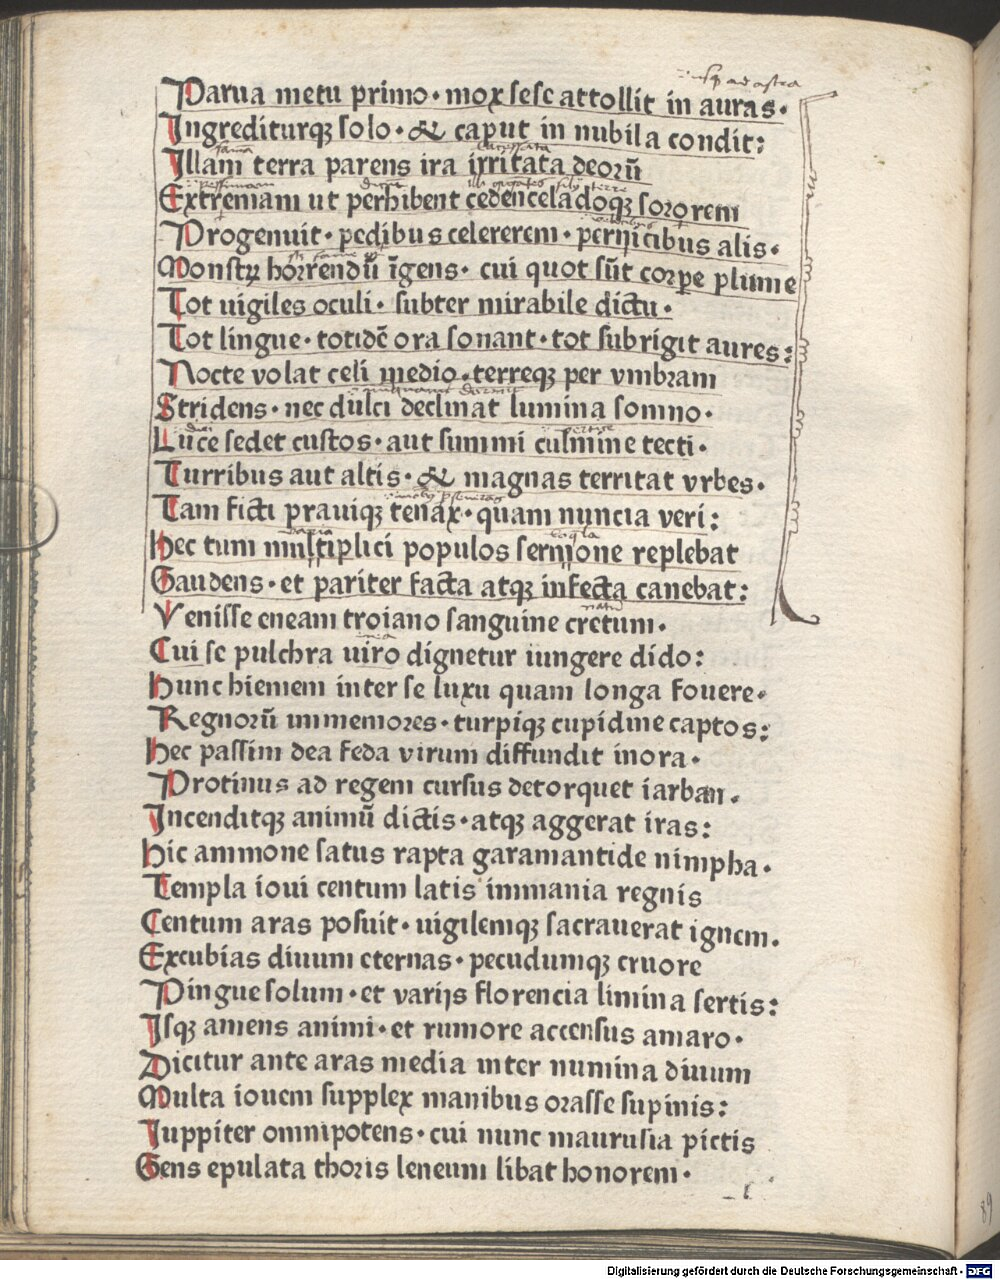 usqȝ ad astra
Parua metu primo · mox sese attollit in auras ·
Ingrediturqȝ solo · & caput in nubila condit:
fama
Illam terra parens ira irritata deorū
pessimam
Extremam ut perhibent cedenceladoqȝ sororem
Progenuit · pedibus celererem · pernicibus alis ·
Monstrꝝ horrendū īgens · cui quot sūt corpe plume
Tot uigiles oculi · subter mirabile dictu ·
Tot lingue · totidē ora sonant · tot subrigit aures:
Nocte volat celi medio · terreqȝ per vmbram
Stridens · nec dulci declinat lumina somno ·
diei
Luce sedet custos · aut summi culmine tecti ·
Turribus aut altis · & magnas territat vrbes ·
Tam ficti prauiqȝ tenax · quam nuncia veri:
varia
Hec tum multiplici populos sermone replebat
Gaudens · et pariter facta atqȝ infecta canebat:
natū
Venisse eneam troiano sanguine cretum ·
Cui se pulchra uiro dignetur iungere dido:
Hunc hiemem inter se luxu quam longa fouere ·
Regnorū immemores · turpiqȝ cupidine captos:
Hec passim dea feda virum diffundit in ora ·
Protinus ad regem cursus detorquet iarban ·
Incenditqȝ animū dictis · atqȝ aggerat iras:
Hic ammone satus rapta garamantide nimpha ·
Templa ioui centum latis immania regnis
Centum aras posuit · uigilemqȝ sacrauerat ignem ·
Excubias diuum eternas · pecudumqȝ cruore
Pingue solum · et varijs florencia limina sertis:
Isqȝ amens animi · et rumore accensus amaro ·
Dicitur ante aras media inter numina diuum
Multa iouem supplex manibus orasse supinis:
Iuppiter omnipotens · cui nunc maurusia pictis
Gens epulata thoris leneum libat honorem ·
89
Digitalisierung gefördert durch die Deutsche Forschungsgemeinschaft - DFG